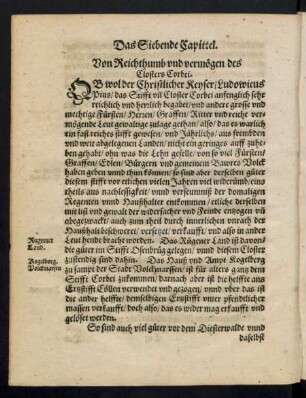 Das Siebende Capittel.
Von Reichthumb vnd vermögen des
Closters Corbei.
OB wol der Christlicher Keyser / Ludowicus
Pius / das Stifft vn̄ Closter Corbei anfenglich sehr
reichlich vnd herrlich begabet / vnd andere grosse vnd
mechtige Fürsten / Herren / Graffen / Ritter vnd reiche ver-
mögende Leut gewaltige zulage gethan / also / das es warlich
ein fast reiches stifft gewesen / vnd Jährlichs / aus frembden
vnd weit abgelegenen Landen / nicht ein gerings auff zuhe-
ben gehabt / ohn was die Lehn gefelle / von so viel Fürsten /
Graffen / Edlen / Bürgern vnd gemeinem Bawrs Volck
haben geben vnnd thun können / so sind aber derselben güter
diesem stifft vor etlichen vielen Jahren viel widerumb / eins
theils aus nachlessigkeit / vnnd versumnuß der domaligen
Regenten vnnd Haußhalter einkommen / etliche derselben
mit list vnd gewalt der widersacher vnd Feinde entzogen vn̄
abgezwackt / auch zum theil durch innerlichen vnrath der
Haushalt beschweret / versetzet / verkaufft / vnd also in ander
Leut hende bracht worden. Das Rügener Land ist davon /
die güter im Stifft Osenbrüg gelegen / vnnd diesem Closter
zustendig sind dahin. Das Hauß vnd Ampt Kogelberg
zu sampt der Stadt Volckmarssen / ist für alters gantz dem
Stifft Corbei zukommen / darnach aber ist die helffte ans
Ertzstifft Cöllen verwendet vnd gezogen / vnnd vber das ist
die ander helffte / demselbigen Ertzstifft vnter pfendtlicher
massen verkaufft / doch also / das es wider mag erkaufft vnd
gelöset werden.
So sind auch viel güter vor dem Diesterwalde vnnd
daselbst
Rugener
Land.
Kogelberg.
Volckmarssn